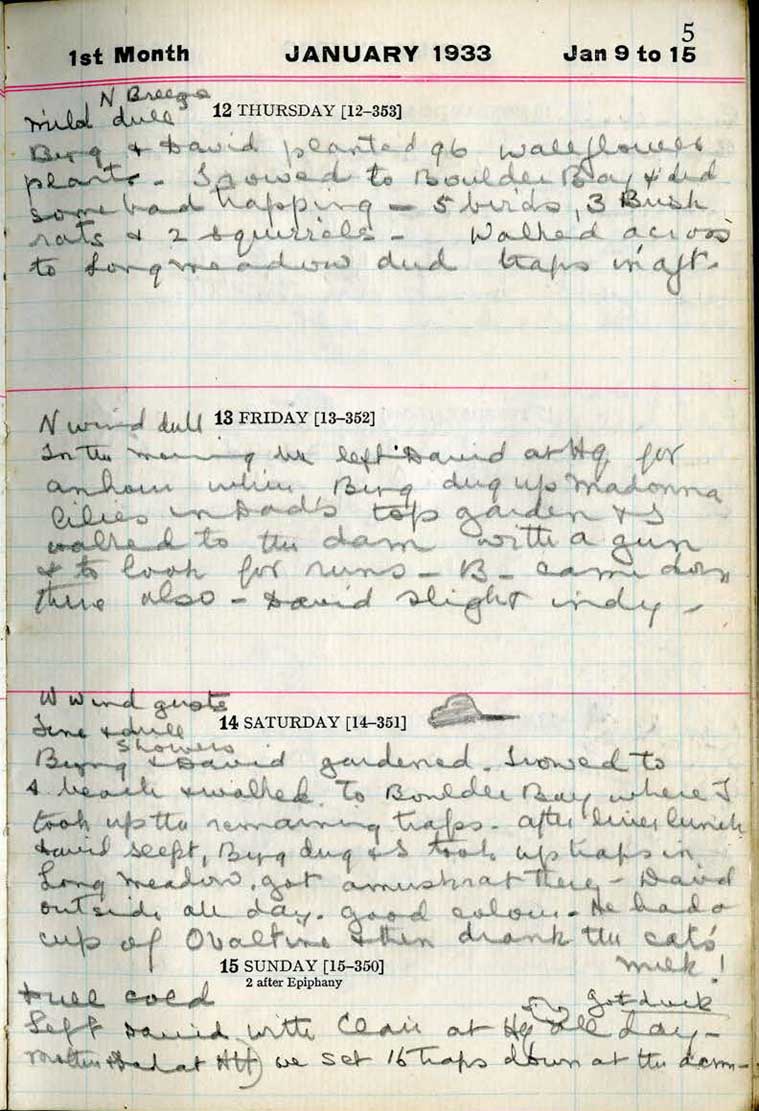 5
1st Month JANUARY 1933 Jan 9 to 15
N Breeze
mild dull 12 THURSDAY [12–353]
Byng & David planted 96 wallflower
plants - I rowed to Boulder Bay & did
some bad trapping - 5 birds, 3 Bush
rats & 2 squirrels - Walked across
to Longmeadow did traps in aft -
N wind dull 13 FRIDAY [13–352]
In the morning we left David at Hq for
an hour while Byng dug up madonna
lilies in Dad's top garden & I
walked to the dam with a gun
& to look for runs - B - came down
there also - David slight indy -
W wind gusts
fine & dull 14 SATURDAY [14–351]
showers
Byng & David gardened. I rowed to
beach & walked to Boulder Bay where I
took up the remaining traps. after lunch
David slept, Byng dug & I took up traps in
Long meadow. got a muskrat there - David
outside all day. good colour. He had a
cup of Ovaltine & then drank the cat's
milk!
15 SUNDAY [15–350]
2 after Epiphany
Dull cold got duck
Left David with Clair at Hq all day -
we set 16 traps down at the dam -